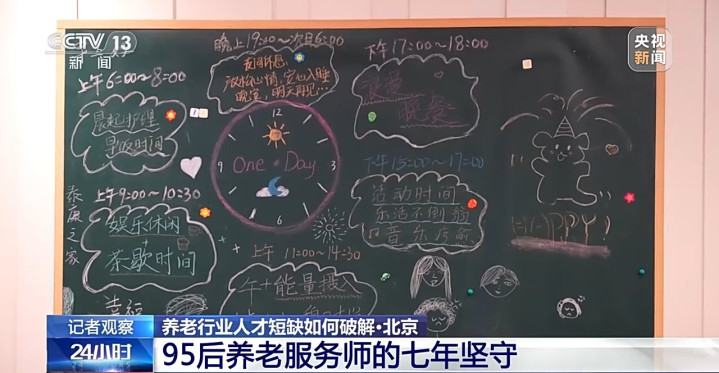 CCTV 13
新闻
央视
新闻
上午6:00~8:00
晨起护理
早餐时间
晚上19:00~次日6:00
夜间休息
放松心情,安心入睡
晚安,明天再见...
下午17:00~18:00
晚餐
上午9:00~10:30
娱乐休闲
+
茶歇时间
泰康之家
12
3
6
9
One Day
下午15:00~17:00
活动时间
乐活不倒翁
音乐疗愈
上午11:00~14:30
午+能量摄入
幸福
记者观察
24小时
养老行业人才短缺如何破解·北京
95后养老服务师的七年坚守